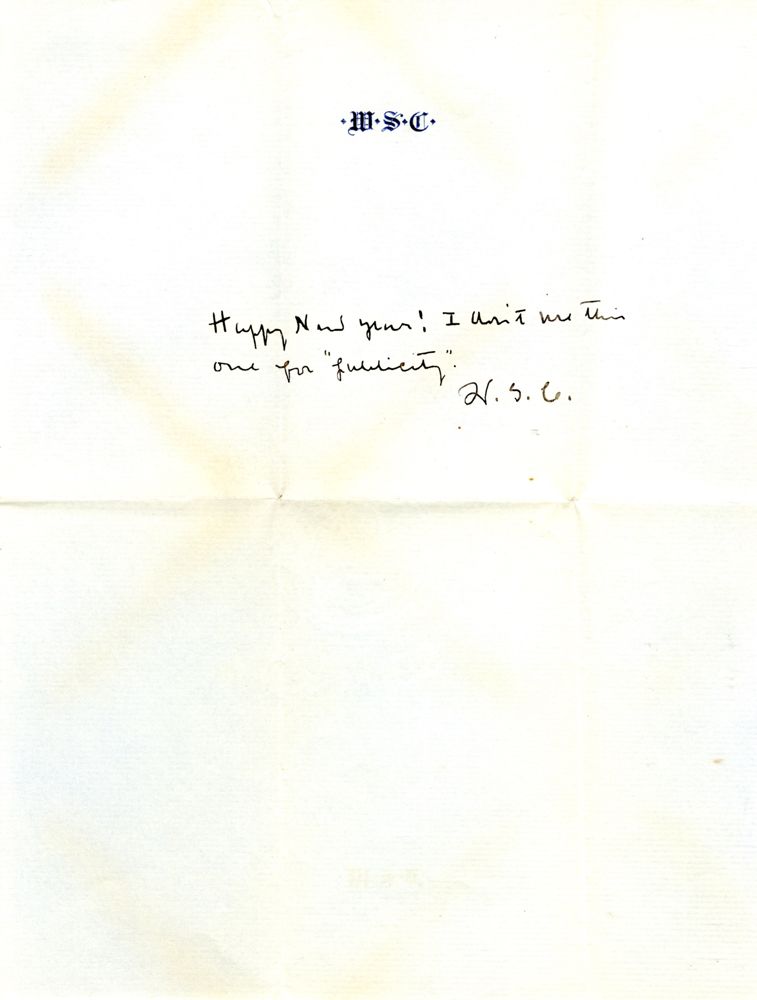 ·W·S·C·
Happy New Year! I don't use this
one for "publicity".
W. S. C.